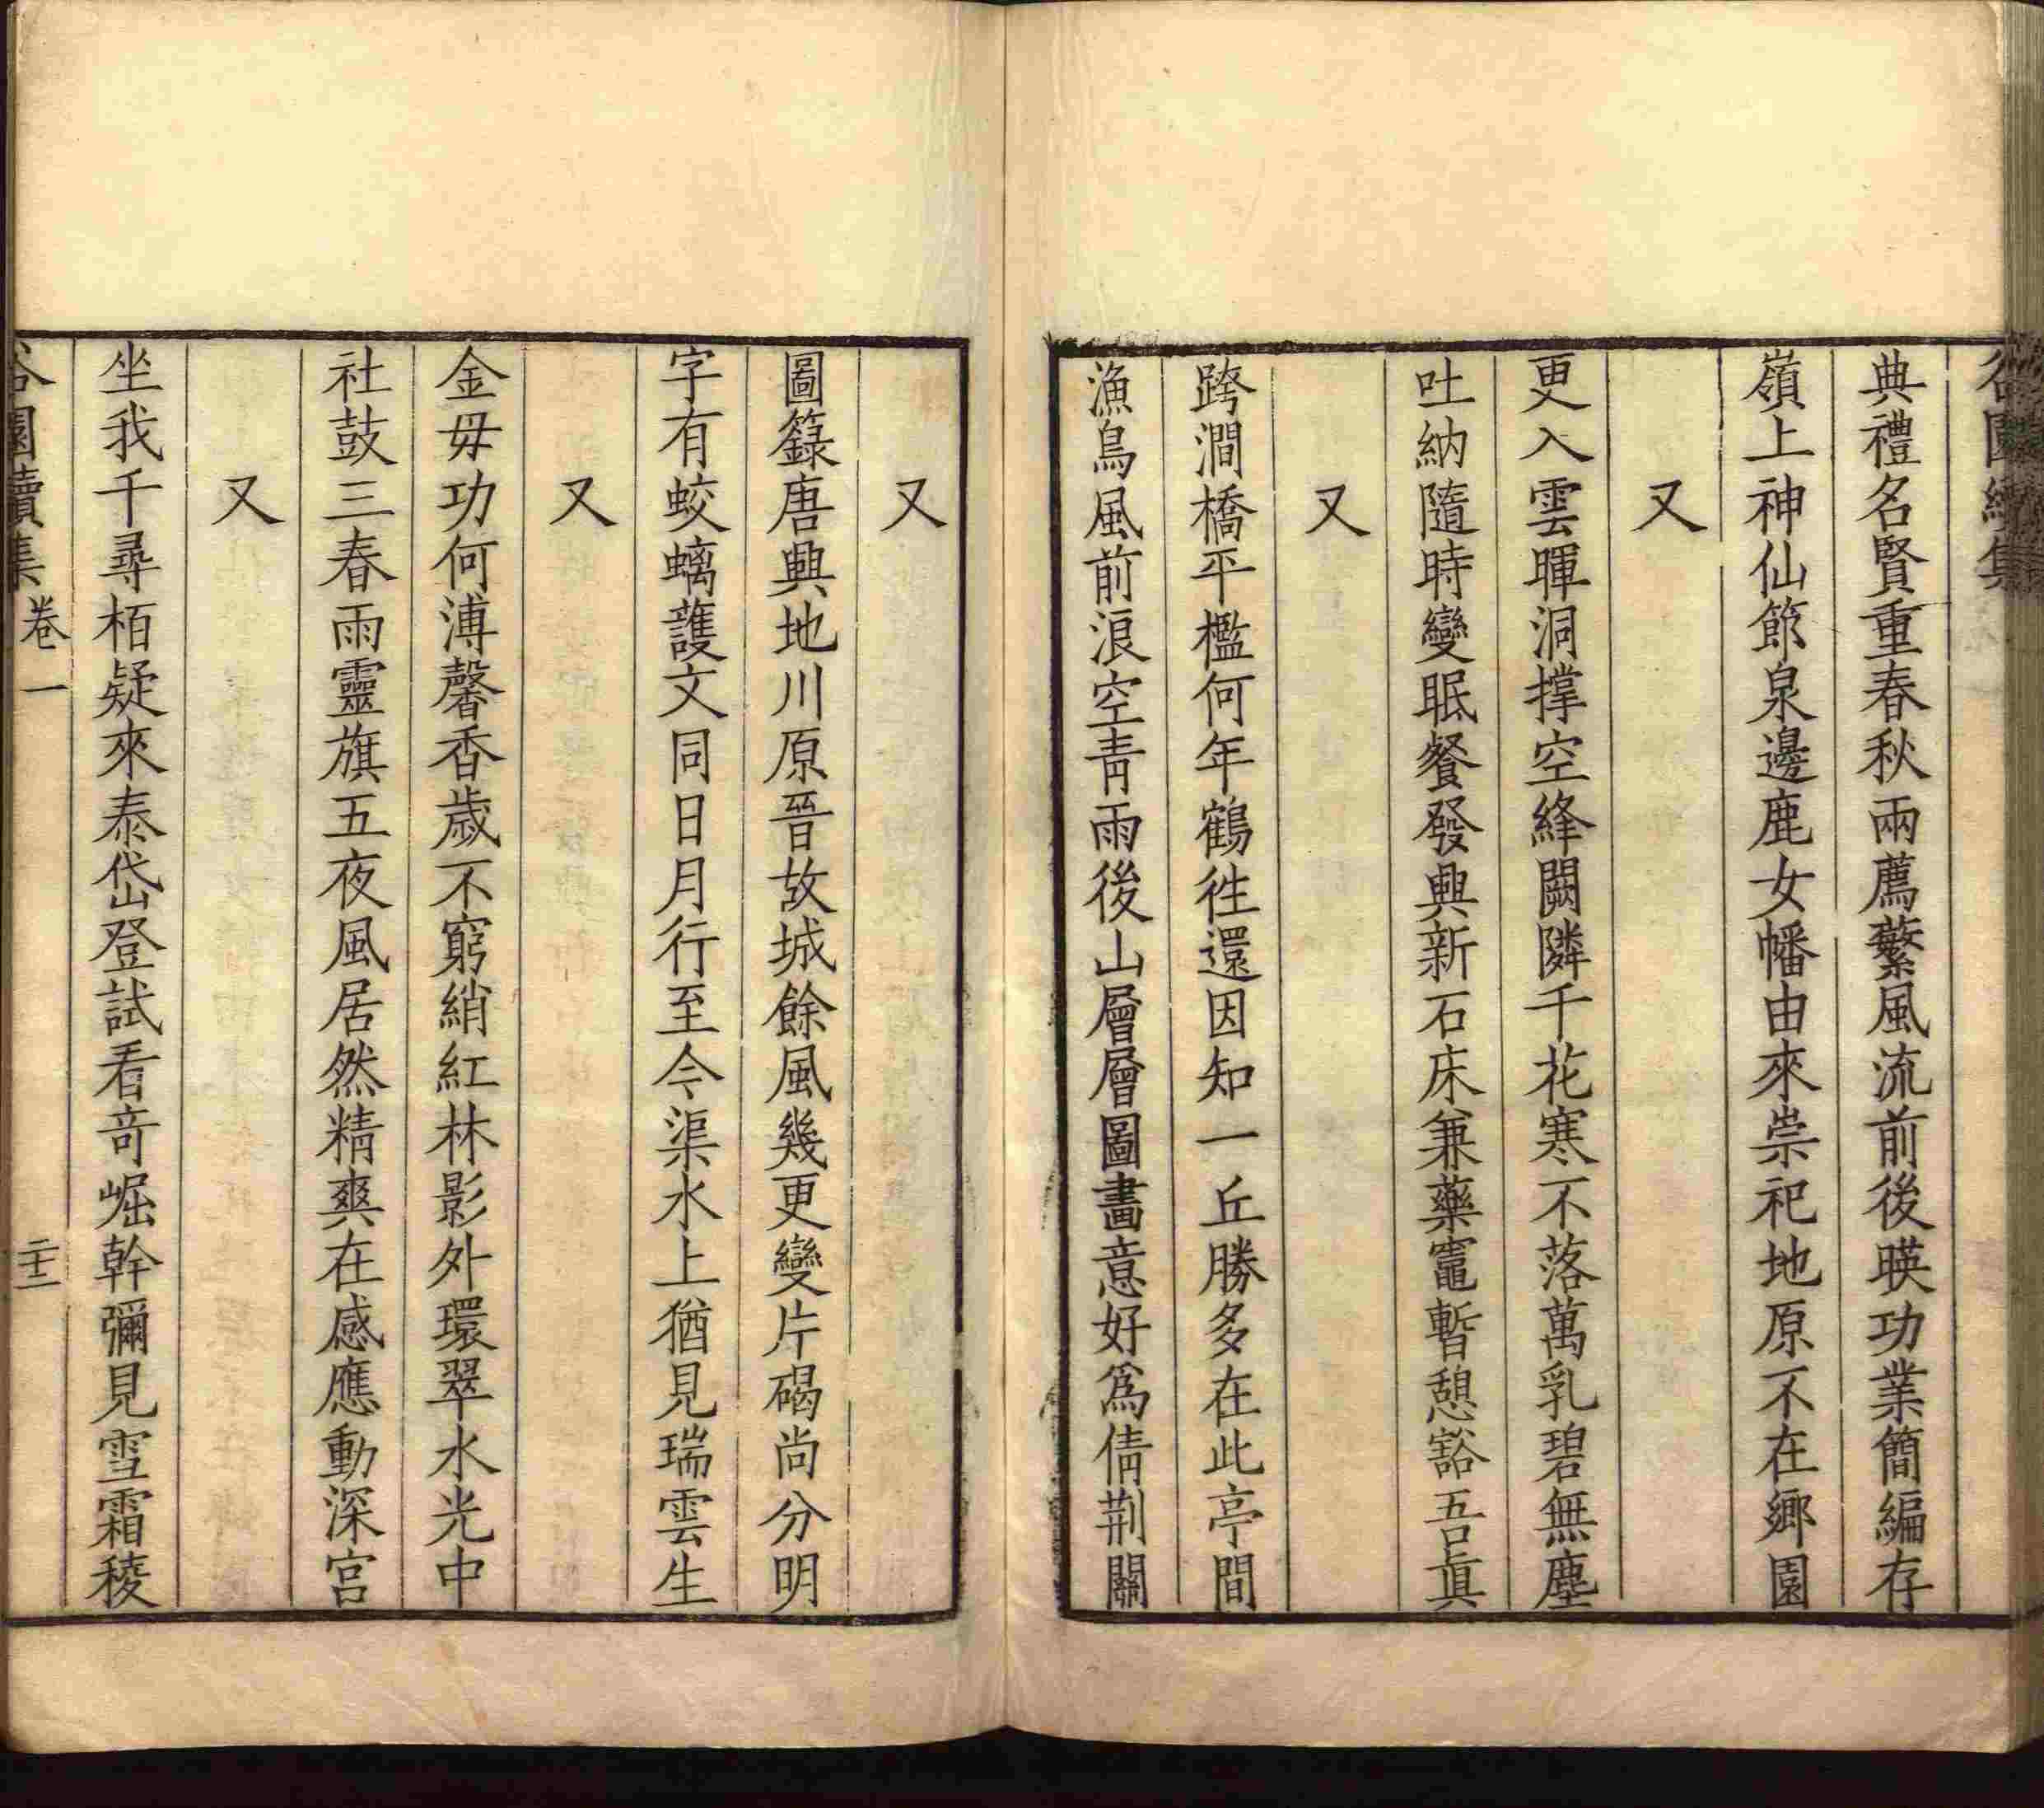 典禮名賢重春秋兩薦蘩風流前後暎功業簡編存
嶺上神仙節泉邊鹿女幡由來崇祀地原不在鄉園
又
更入雲暉洞撑空絳闕隣千花寒不落萬乳碧無塵
吐納隨時變眠餐發興新石床兼藥竈暫憩豁吾眞
又
跨澗橋平檻何年鶴徃還因知一丘勝多在此亭間
漁鳥風前浪空青雨後山層層圖畫意好爲倩荆關
又
圖籙唐興地川原晉故城餘風幾更變片碣尚分明
字有蛟螭護文同日月行至今渠水上猶見瑞雲生
又
金毋功何溥馨香歲不窮綃紅林影外環翠水光中
社鼓三春雨靈旗五夜風居然精爽在感應動深宮
又
坐我千尋栢疑來泰岱登試看竒崛幹彌見雪霜稜
園續集 卷一 二十二